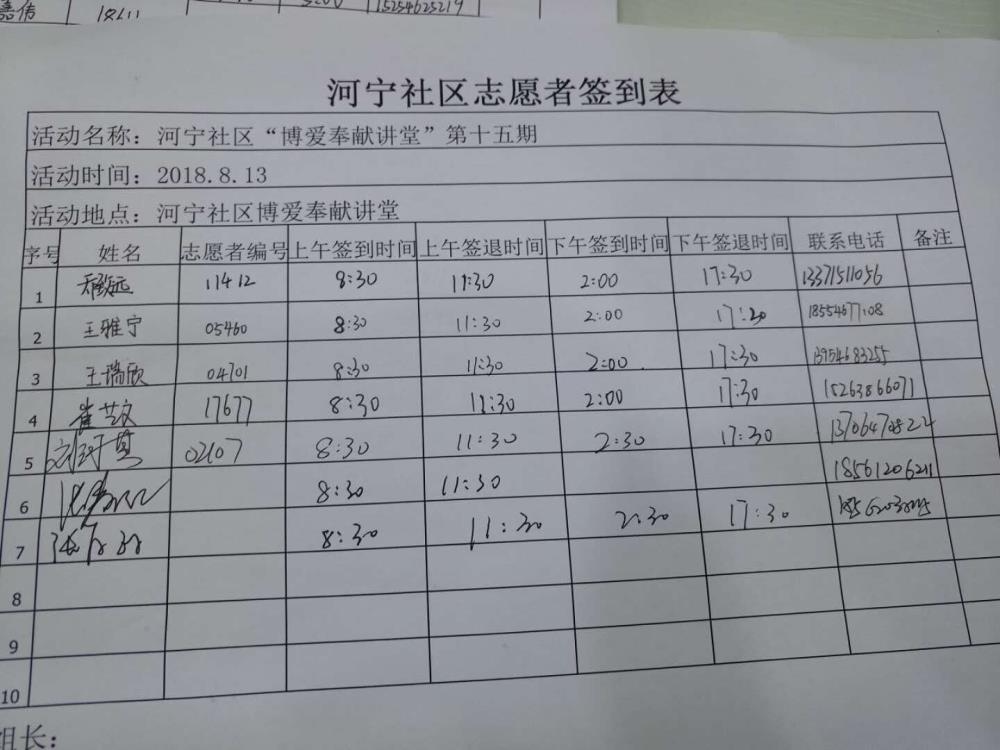 18611 15254625219
河宁社区志愿者签到表
活动名称：河宁社区“博爱奉献讲堂”第十五期
活动时间：2018.8.13
活动地点：河宁社区博爱奉献讲堂
序号 姓名 志愿者编号 上午签到时间 上午签退时间 下午签到时间 下午签退时间 联系电话 备注
1 11412 8:30 11:30 2:00 17:30 13371511056
2 王雅宁 05460 8:30 11:30 2:00 17:30 18554677108
3 王瑞欣 04701 8:30 11:30 2:00 17:30 13954683255
4 崔艺文 17677 8:30 11:30 2:00 17:30 15263866071
5 刘珂真 02107 8:30 11:30 2:30 17:30 13706470822
6 8:30 11:30 18561206211
7 8:30 11:30 2:30 17:30
8
9
10
组长：